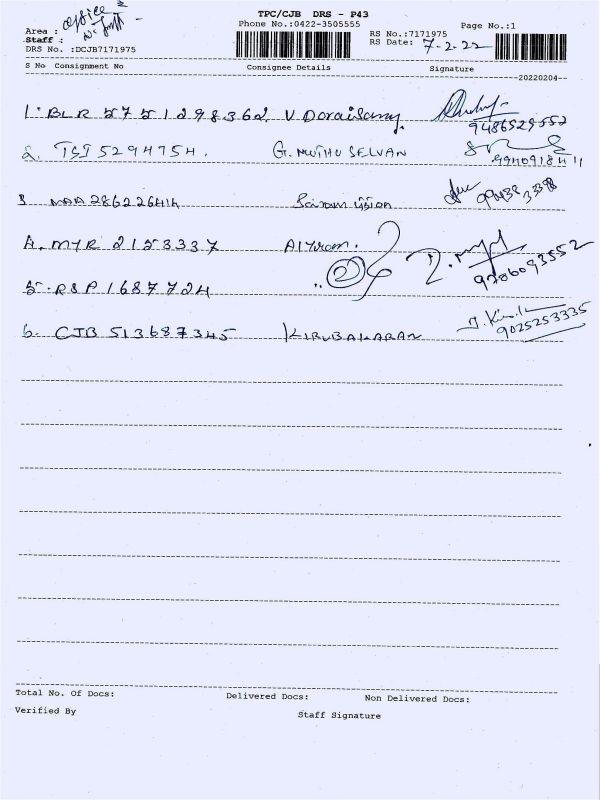 TPC/CJB DRS - P43
Area : office
Phone No.:0422-3505555
RS No.:7171975
Page No.:1
Staff :
RS Date: 7-2-22
DRS No. :DCJB7171975
S No Consignment No Consignee Details Signature
20220204
1. BLR 575129836 2 V Doraisamy. 9486529552
2. TSI 5294754. G. MUTHU SELVAN
3 MAA 286226414
4. MYR 2153337 9786093552
5. RSP 1687724 .. 2
6. CJB 513687345 KIRUBAKARAN 9025253335
Total No. Of Docs: Delivered Docs: Non Delivered Docs:
Verified By Staff Signature